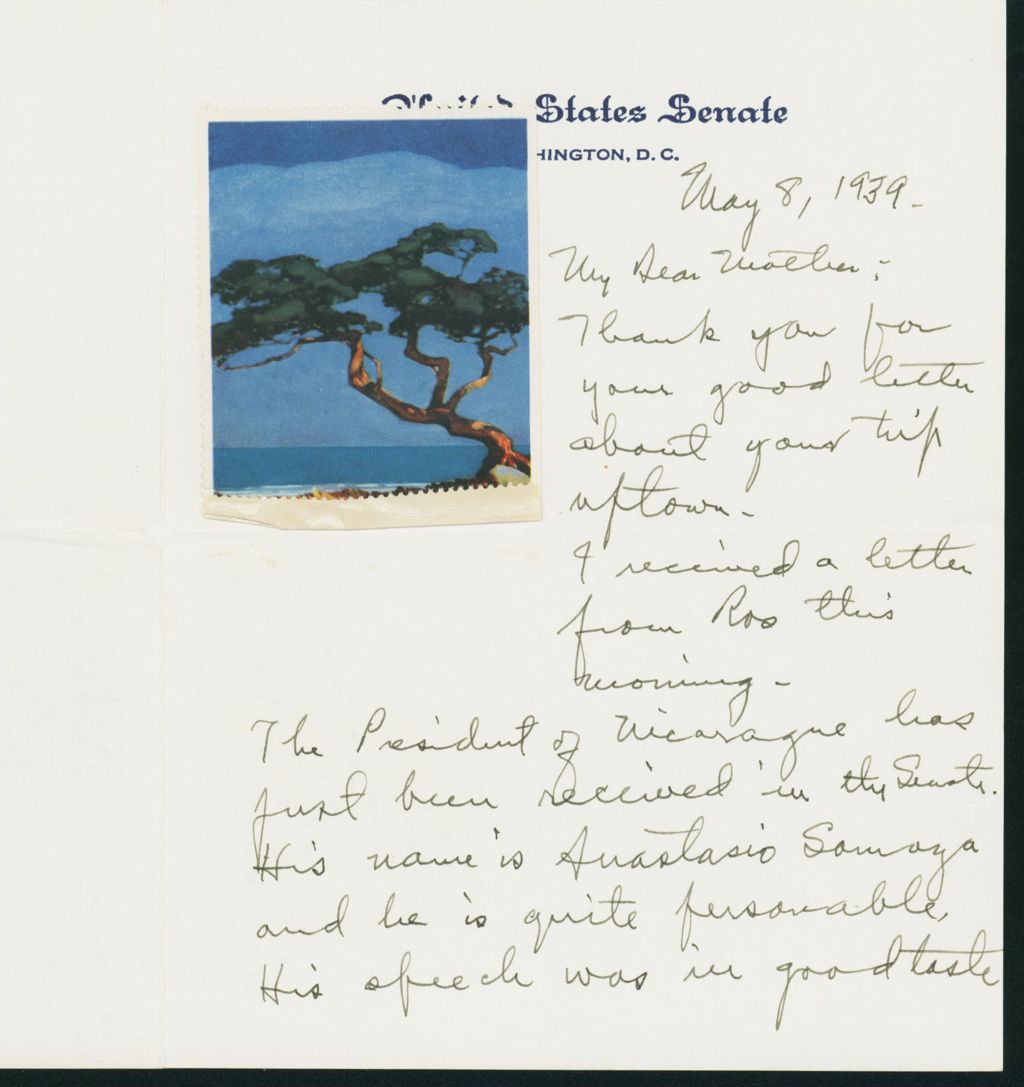 United States Senate
HINGTON, D. C.
May 8, 1939.
My Dear Mother;
Thank you for
your good letter
about your trip
uptown.
I received a letter
from Ros this
morning -
The President of Nicaragua has
just been received in the Senate.
His name is Anastasio Somoza
and he is quite personable.
His speech was in good taste